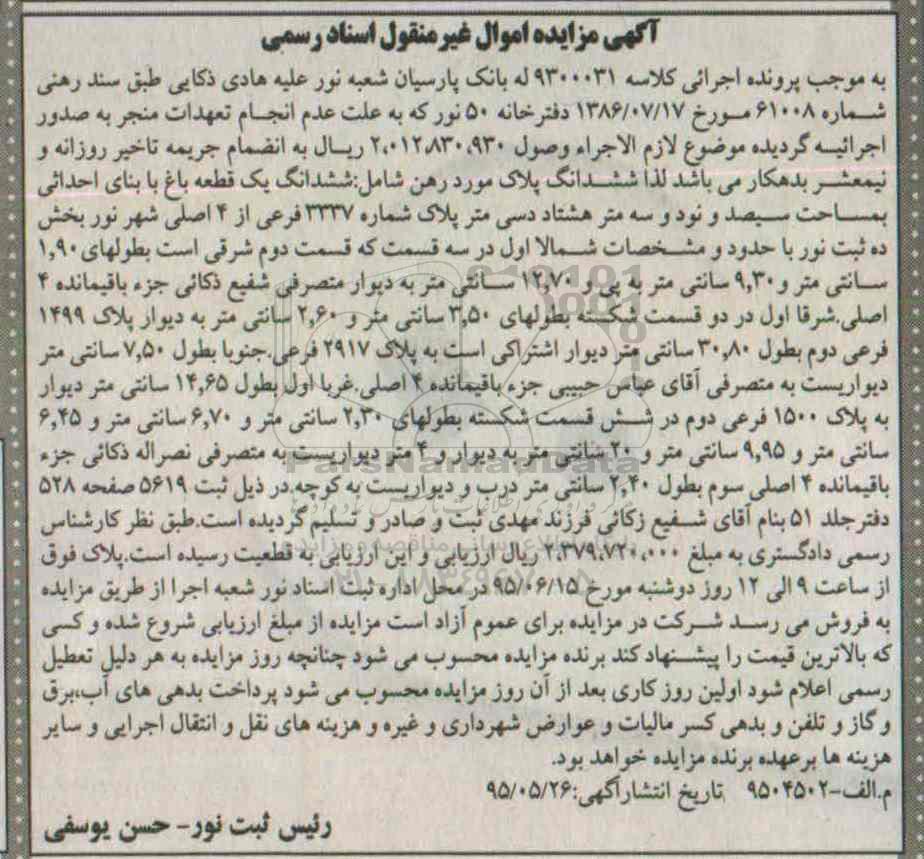 آگهی مزایده اموال غیرمنقول اسناد رسمی
به موجب پرونده اجرائی کلاسه ۹۳۰۰۰۳۱ له بانک پارسیان شعبه نور علیه هادی ذکایی طبق سند رهنی
شماره ۶۱۰۰۸ مورخ ۱۳۸۶/۰۷/۱۷ دفترخانه ۵۰ نور که به علت عدم انجام تعهدات منجر به صدور
اجرائیه گردیده موضوع لازم الاجراء وصول ۲،۰۱۲،۸۳۰،۹۳۰ ریال به انضمام جریمه تاخیر روزانه و
نیمعشر بدهکار می باشد لذا ششدانگ پلاک مورد رهن شامل:ششدانگ یک قطعه باغ با بنای احداثی
بمساحت سیصد و نود و سه متر هشتاد دسی متر پلاک شماره ۳۳۳۷ فرعی از ۴ اصلی شهر نور بخش
ده ثبت نور با حدود و مشخصات شمالا اول در سه قسمت که قسمت دوم شرقی است بطولهای ۱,۹۰
سانتی متر و ۹,۳۰ سانتی متر به پی و ۱۲,۷۰ سانتی متر به دیوار متصرفی شفیع ذکائی جزء باقیمانده ۴
اصلی.شرقا اول در دو قسمت شکسته بطولهای ۳,۵۰ سانتی متر و ۲,۶۰ سانتی متر به دیوار پلاک ۱۴۹۹
فرعی دوم بطول ۳۰,۸۰ سانتی متر دیوار اشتراکی است به پلاک ۲۹۱۷ فرعی.جنوبا بطول ۷,۵۰ سانتی متر
دیواریست به متصرفی آقای عباس حبیبی جزء باقیمانده ۴ اصلی.غربا اول بطول ۱۴,۶۵ سانتی متر دیوار
به پلاک ۱۵۰۰ فرعی دوم در شش قسمت شکسته بطولهای ۲,۳۰ سانتی متر و ۶,۷۰ سانتی متر و ۶,۴۵
سانتی متر و ۹,۹۵ سانتی متر و ۲۰ سانتی متر به دیوار و ۴ متر دیواریست به متصرفی نصراله ذکائی جزء
باقیمانده ۴ اصلی سوم بطول ۲,۴۰ سانتی متر درب و دیواریست به کوچه.در ذیل ثبت ۵۶۱۹ صفحه ۵۲۸
دفترجلد ۵۱ بنام آقای شفیع زکائی فرزند مهدی ثبت و صادر و تسلیم گردیده است.طبق نظر کارشناس
رسمی دادگستری به مبلغ ۲،۳۷۹،۷۲۰،۰۰۰ ریال ارزیابی و این ارزیابی به قطعیت رسیده است.پلاک فوق
از ساعت ۹ الی ۱۲ روز دوشنبه مورخ ۹۵/۰۶/۱۵ در محل اداره ثبت اسناد نور شعبه اجرا از طریق مزایده
به فروش می رسد شرکت در مزایده برای عموم آزاد است مزایده از مبلغ ارزیابی شروع شده و کسی
که بالاترین قیمت را پیشنهاد کند برنده مزایده محسوب می شود چنانچه روز مزایده به هر دلیل تعطیل
رسمی اعلام شود اولین روز کاری بعد از آن روز مزایده محسوب می شود پرداخت بدهی های آب،برق
و گاز و تلفن و بدهی کسر مالیات و عوارض شهرداری و غیره و هزینه های نقل و انتقال اجرایی و سایر
هزینه ها برعهده برنده مزایده خواهد بود.
م.الف-۹۵۰۴۵۰۲ تاریخ انتشارآگهی:۹۵/۰۵/۲۶
رئیس ثبت نور- حسن یوسفی
ParsNamadData